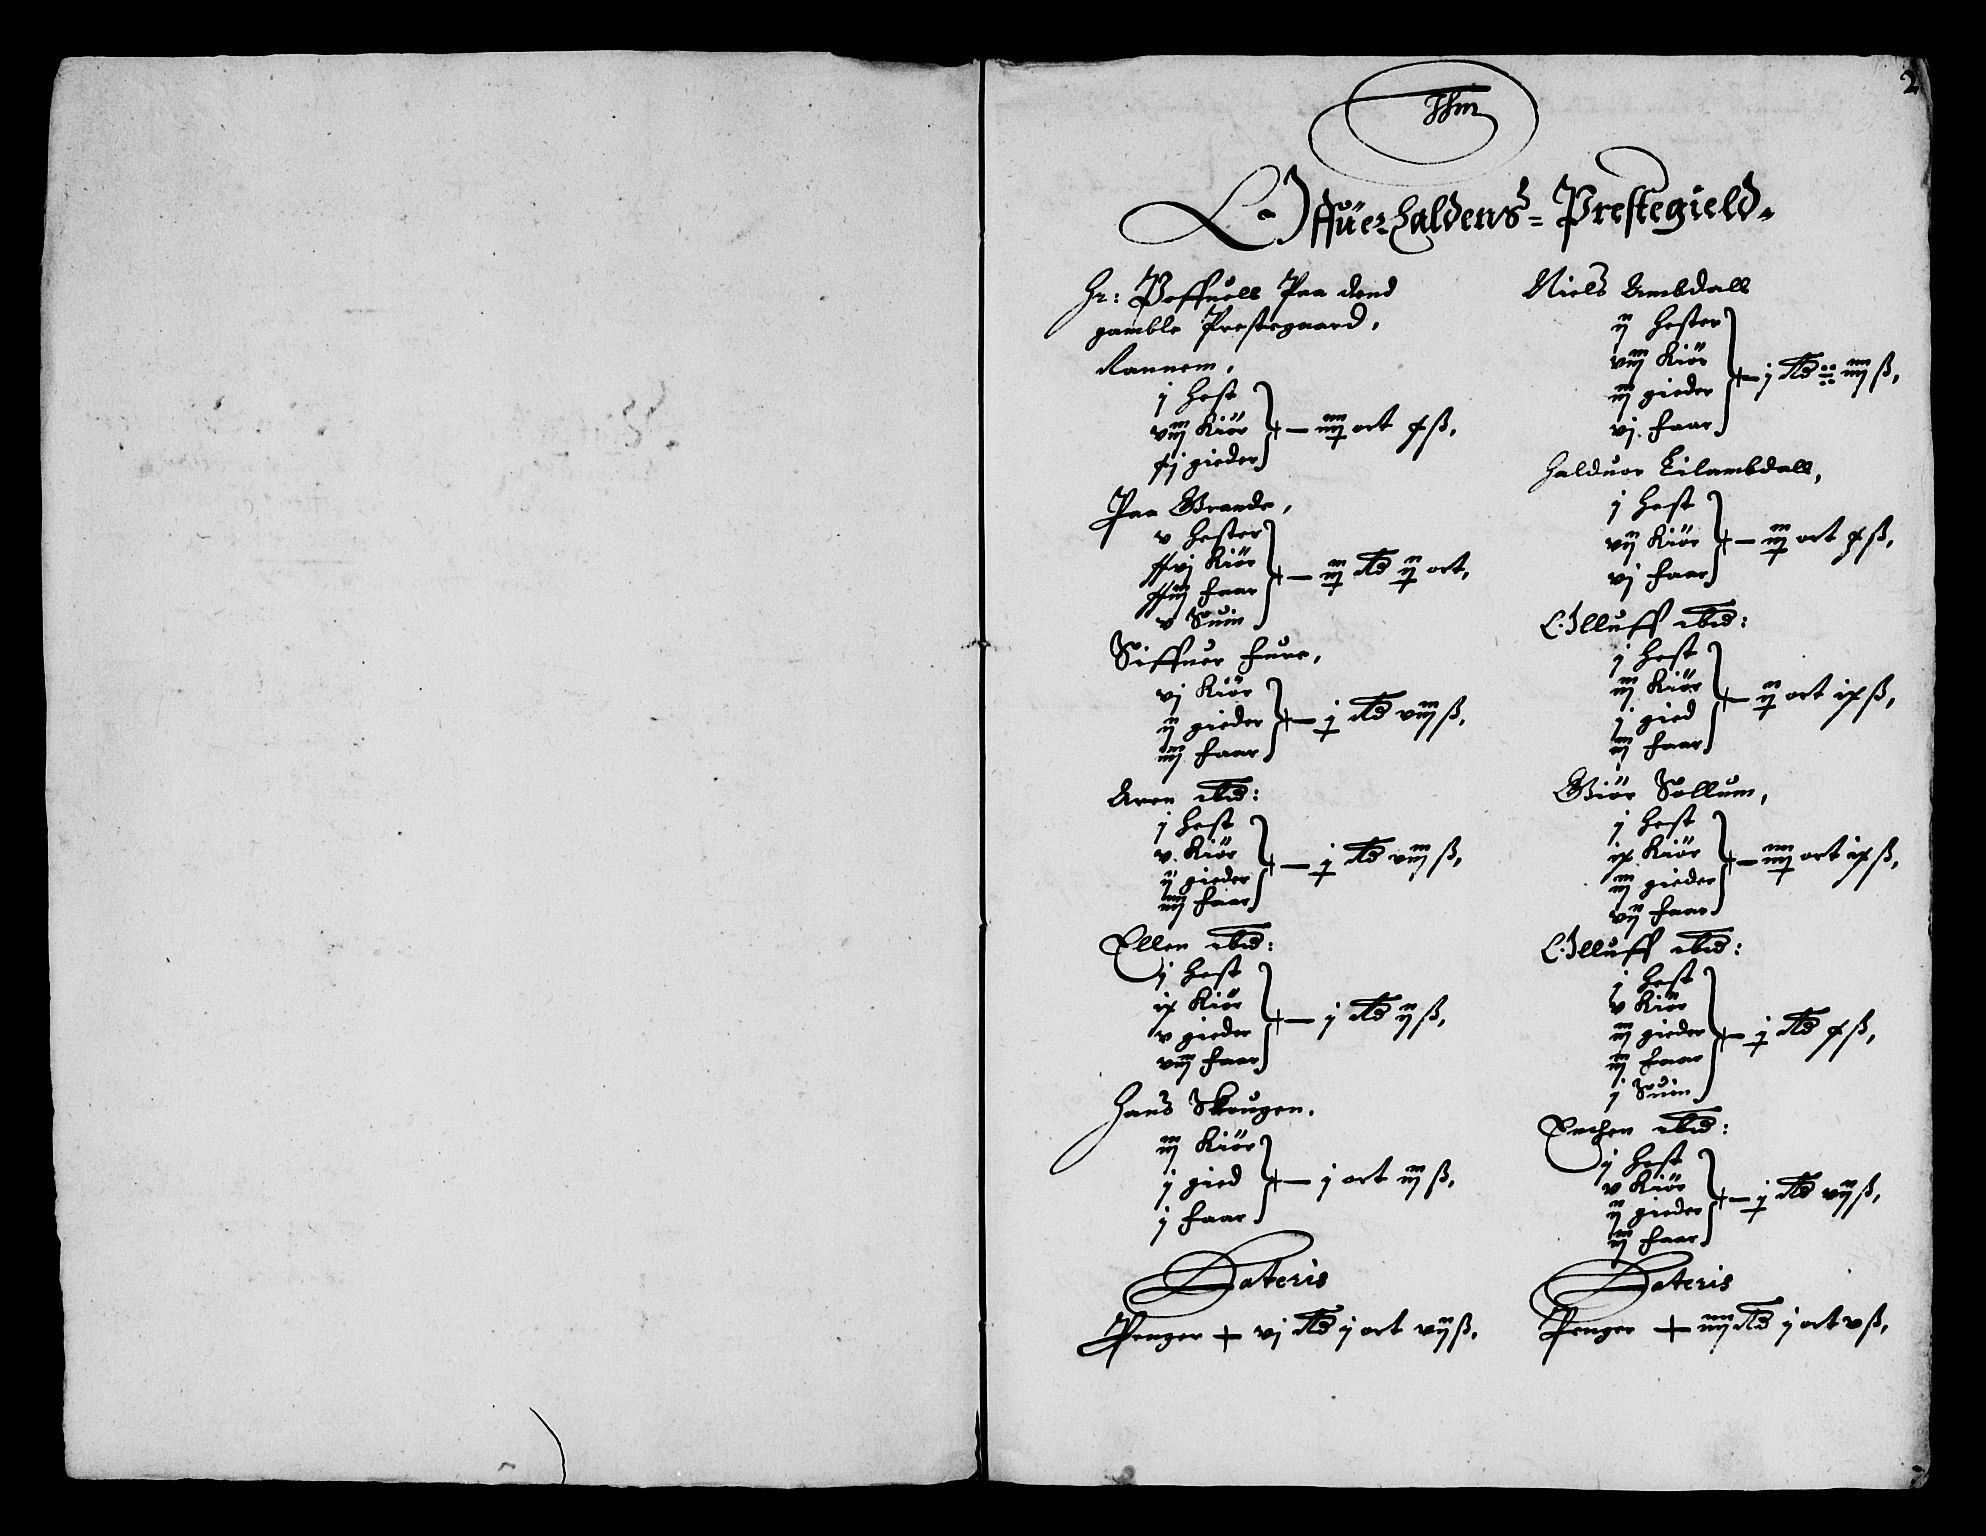 2
Jhm
Offüerhaldens= Prestegield.
Hr: Poffuell Paa dend
gamble Prestegaard,
Rannem,
j Hest
viij Kiör
xj gieder
— iiij ort x ß,
Paa Grande,
v Hester
xxvj Kiör
xxiij faar
v Suin
— iij Rd ij ort,
Siffuer fure,
vj Kiör
ij gieder
iiij faar
— j Rd viij ß,
Aren ibid:
j Hest
v. Kiör
ij gieder
iiij faar
— j Rd viij ß,
Ellen ibid:
j Hest
ix Kiör
v gieder
viij faar
— j Rd ij ß,
Hans Skougen.
iij Kiör
j gied
j faar
— j ort iij ß,
Lateris
Penger + vj Rd j ort vij ß,
Niels Ambdall
ij Hester
viij Kiör
iij gieder
vj. faar
— j Rd iiij ß,
Halduor Eilambdall,
j Hest
vij Kiör
vj faar
— iij ort x ß,
Olluff ibid:
j Hest
iij Kiör
j gied
iij faar
— ij ort ix ß,
Giör Sollum,
j Hest
ix Kiör
iij gieder
vij faar
— iiij ort ix ß,
Olluff ibid:
j Hest
v Kiör
iij gieder
iij faar
j Suin
— j Rd x ß,
Enchen ibid:
j Hest
v Kiör
ij gieder
iij faar
— j Rd vij ß,
Lateris
Penger + iiij Rd j ort v ß,